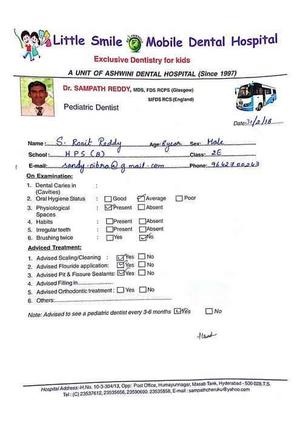 Little Smile Mobile Dental Hospital
Exclusive Dentistry for kids
A UNIT OF ASHWINI DENTAL HOSPITAL (Since 1997)
Dr. SAMPATH REDDY, MDS, FDS RCPS (Glasgow)
MFDS RCS (England)
Pediatric Dentist
Date: 31/2/18
Name: S. Ronit Reddy Age: 8 year Sex: Male
School: HPS (B) Class: 2E
E-mail: @gmail.com Phone: 9642700263
On Examination:
1. Dental Caries in :
(Cavities)
2. Oral Hygiene Status : Good Average Poor
3. Physiological : Present Absent
Spaces
4. Habits : Present Absent
5. Irregular teeth : Present Absent
6. Brushing twice : Yes No
Adviced Treatment:
1. Advised Scaling/Cleaning : Yes No
2. Advised Flouride application: Yes No
3. Advised Pit & Fissure Sealants: Yes No
4. Advised Filling in
5. Advised Orthodontic treatment : Yes No
6. Others:
Note: Advised to see a pediatric dentist every 3-6 months Yes No
Hospital Address: H.No. 10-3-304/13, Opp: Post Office, Humayunnagar, Masab Tank, Hyderabad - 500 028.T.S.
Tel: (C) 23537612, 23535656, 23590690. 23535858, E-mail : sampathcheruku@yahoo.com